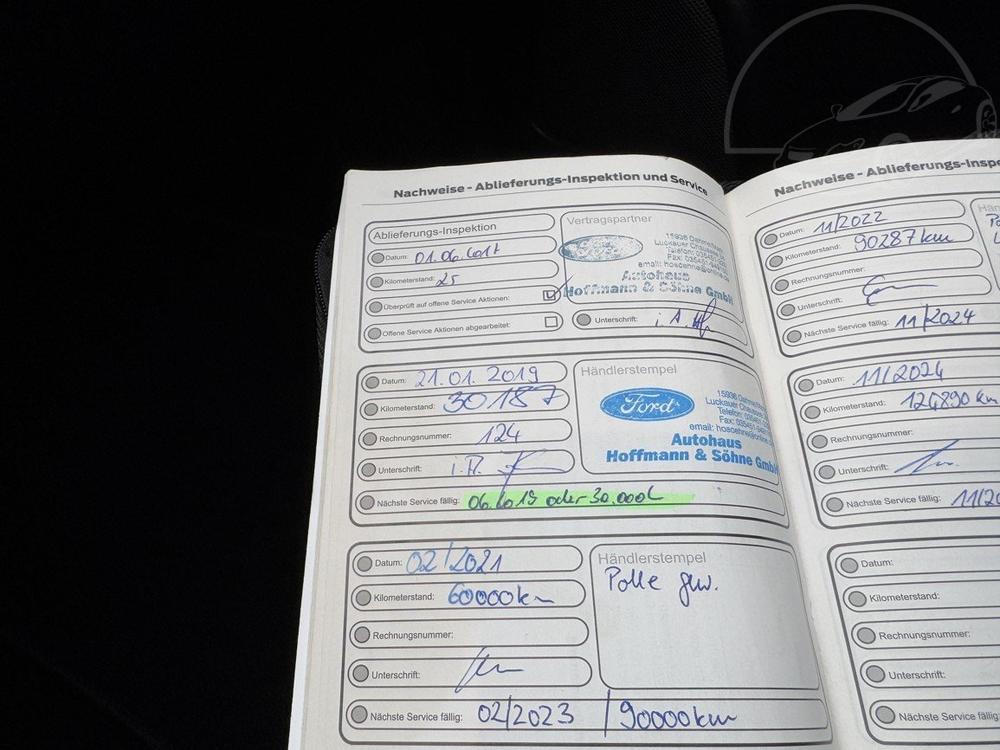 Nachweise - Ablieferungs-Inspektion und Service
Ablieferungs-Inspektion
Datum: 01.06.2017
Kilometerstand: 25
Überprüft auf offene Service Aktionen:
Offene Service Aktionen abgearbeitet:
Vertragspartner
Autohaus
Hoffmann & Söhne GmbH
Unterschrift: i. A.
Datum: 21.01.2019
Kilometerstand: 30187
Rechnungsnummer: 124
Unterschrift: i. A.
Nächste Service fällig: 06.2019 oder 30.000
Händlerstempel
Ford
15936 Dahme/
Luckauer Chaussee
Telefon:
Fax:
email:
Autohaus
Hoffmann & Söhne GmbH
Datum: 02/2021
Kilometerstand: 60000km
Rechnungsnummer:
Unterschrift:
Nächste Service fällig: 02/2023 / 90000km
Händlerstempel
Nachweise - Ablieferungs-Inspe
Datum: 11/2022
Kilometerstand: 90287km
Rechnungsnummer:
Unterschrift:
Nächste Service fällig: 11/2024
Datum: 11/2024
Kilometerstand: 124890 km
Rechnungsnummer:
Unterschrift:
Nächste Service fällig: 11/20
Datum:
Kilometerstand:
Rechnungsnummer:
Unterschrift:
Nächste Service fällig: